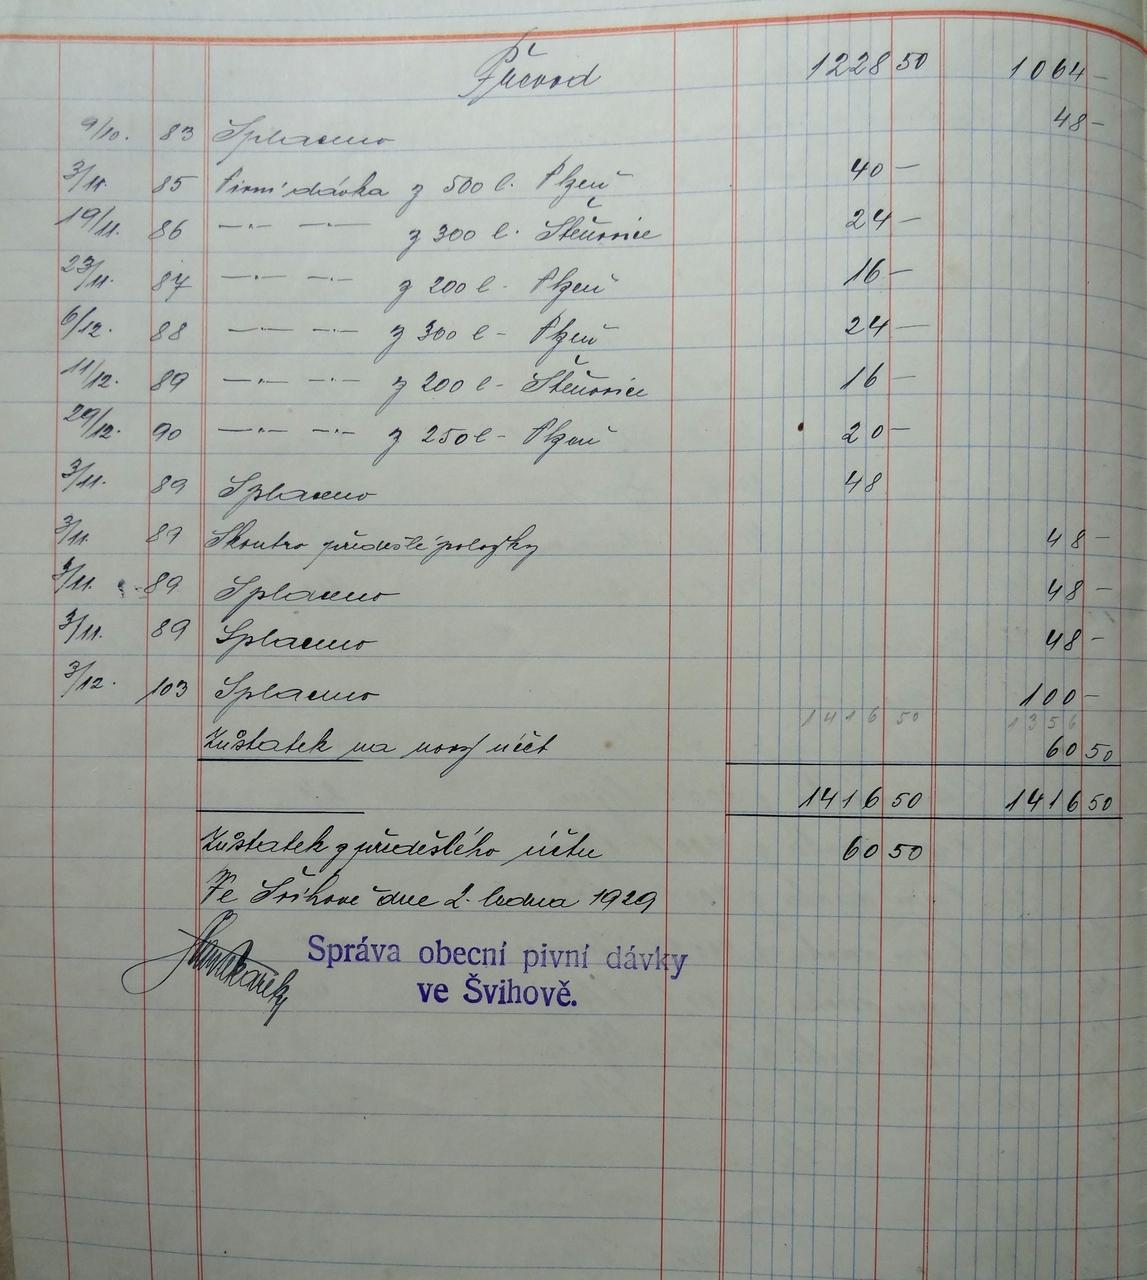 Převod 1228 50 1064 –
9/10. 83 Splaceno 48 –
3/11. 85 Pivní dávka z 500 l. Plzeň 40 –
19/11. 86 —„— —„— z 300 l. Štěnovice 24 –
23/11. 87 —„— —„— z 200 l – Plzeň 16 –
6/12. 88 —„— —„— z 300 l – Plzeň 24 –
11/12. 89 —„— —„— z 200 l – Štěnovice 16 –
29/12. 90 —„— —„— z 250 l – Plzeň 20 –
3/11. 89 Splaceno 48
3/11. 89 Skontro předešlé položky 48 –
3/11. 89 Splaceno 48 –
3/11. 89 Splaceno 48 –
3/12. 103 Splaceno 100 –
1416 50 1356
Zůstatek na nový účet 60 50
1416 50 1416 50
Zůstatek z předešlého účtu 60 50
Ve Švihově dne 2. ledna 1929
Správa obecní pivní dávky
ve Švihově.